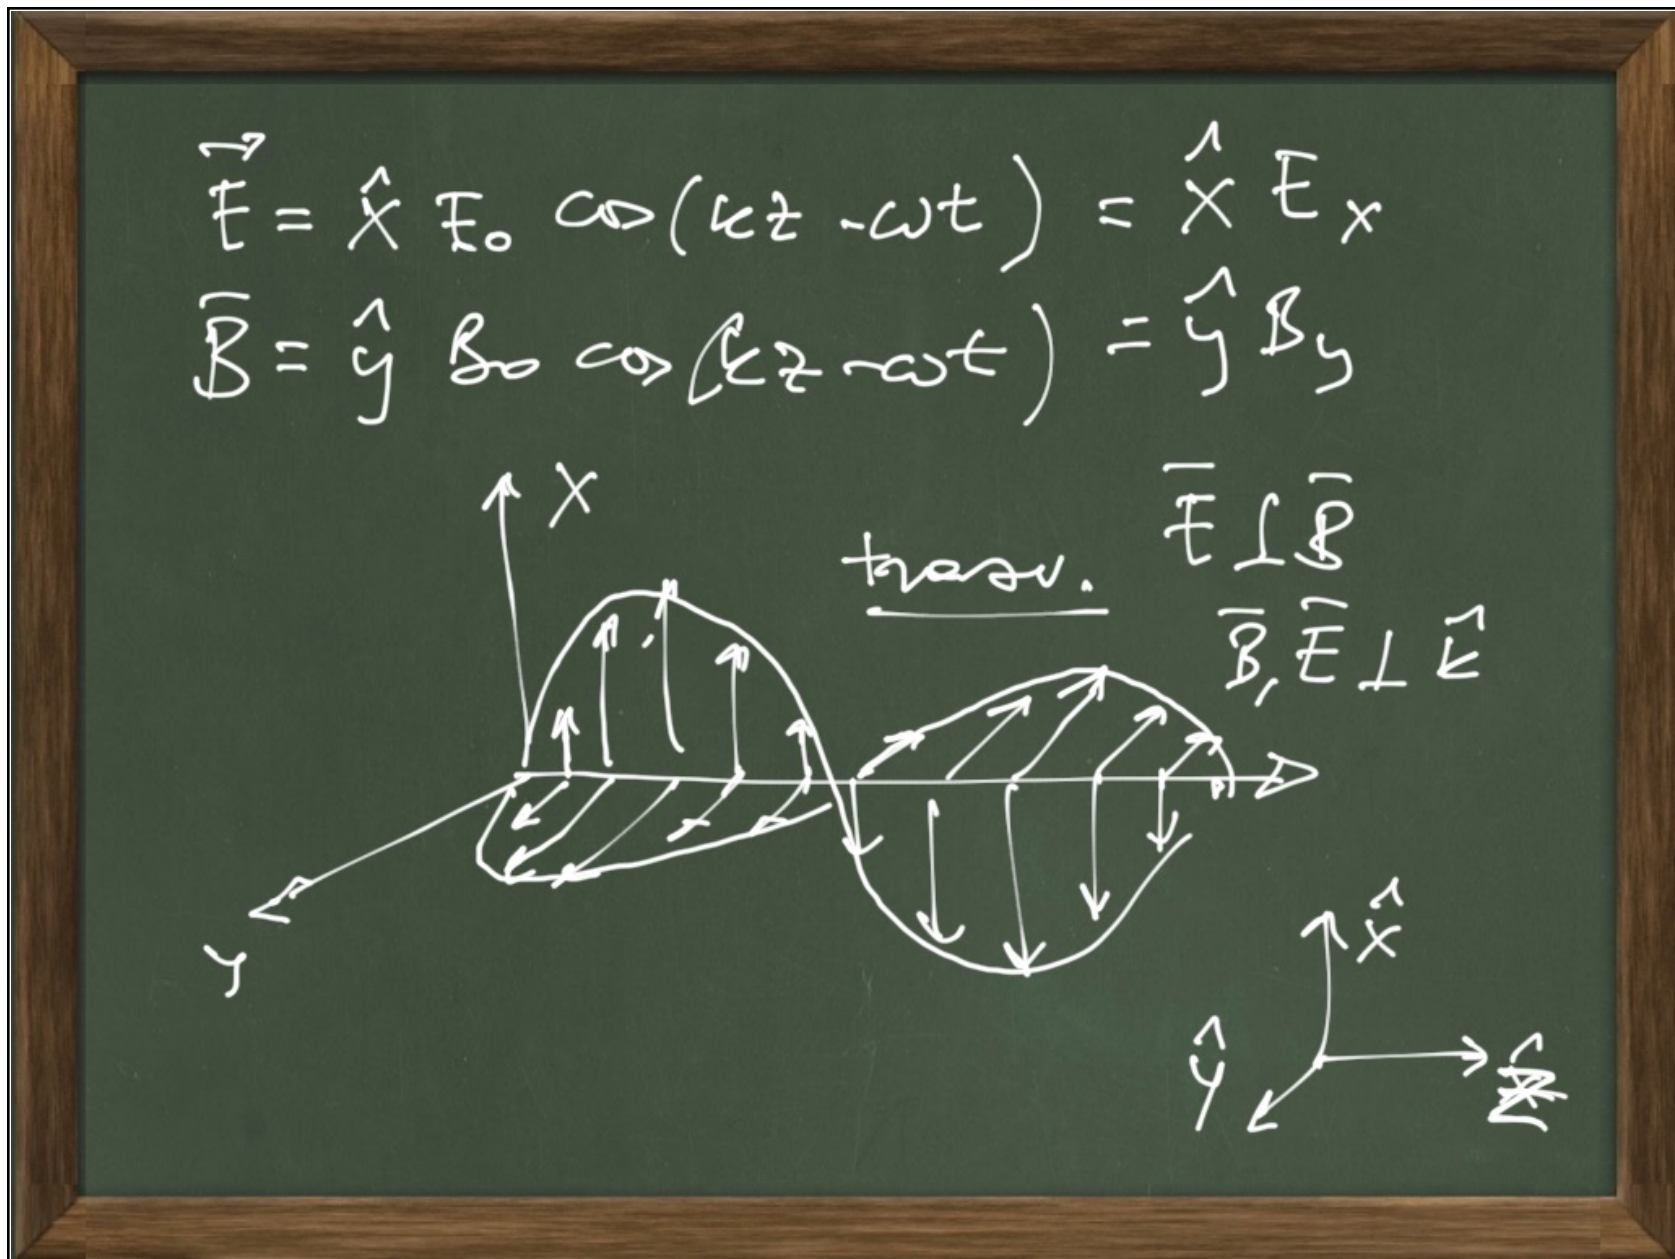 E⃗ = x̂ E₀ cos(kz - ωt) = x̂ Eₓ
B̅ = ŷ B₀ cos(kz - ωt) = ŷ B_y
X
E̅ ⊥ B̅
trasv.
B̅, E̅ ⊥ k̂
Y
x̂
ŷ
ẑ